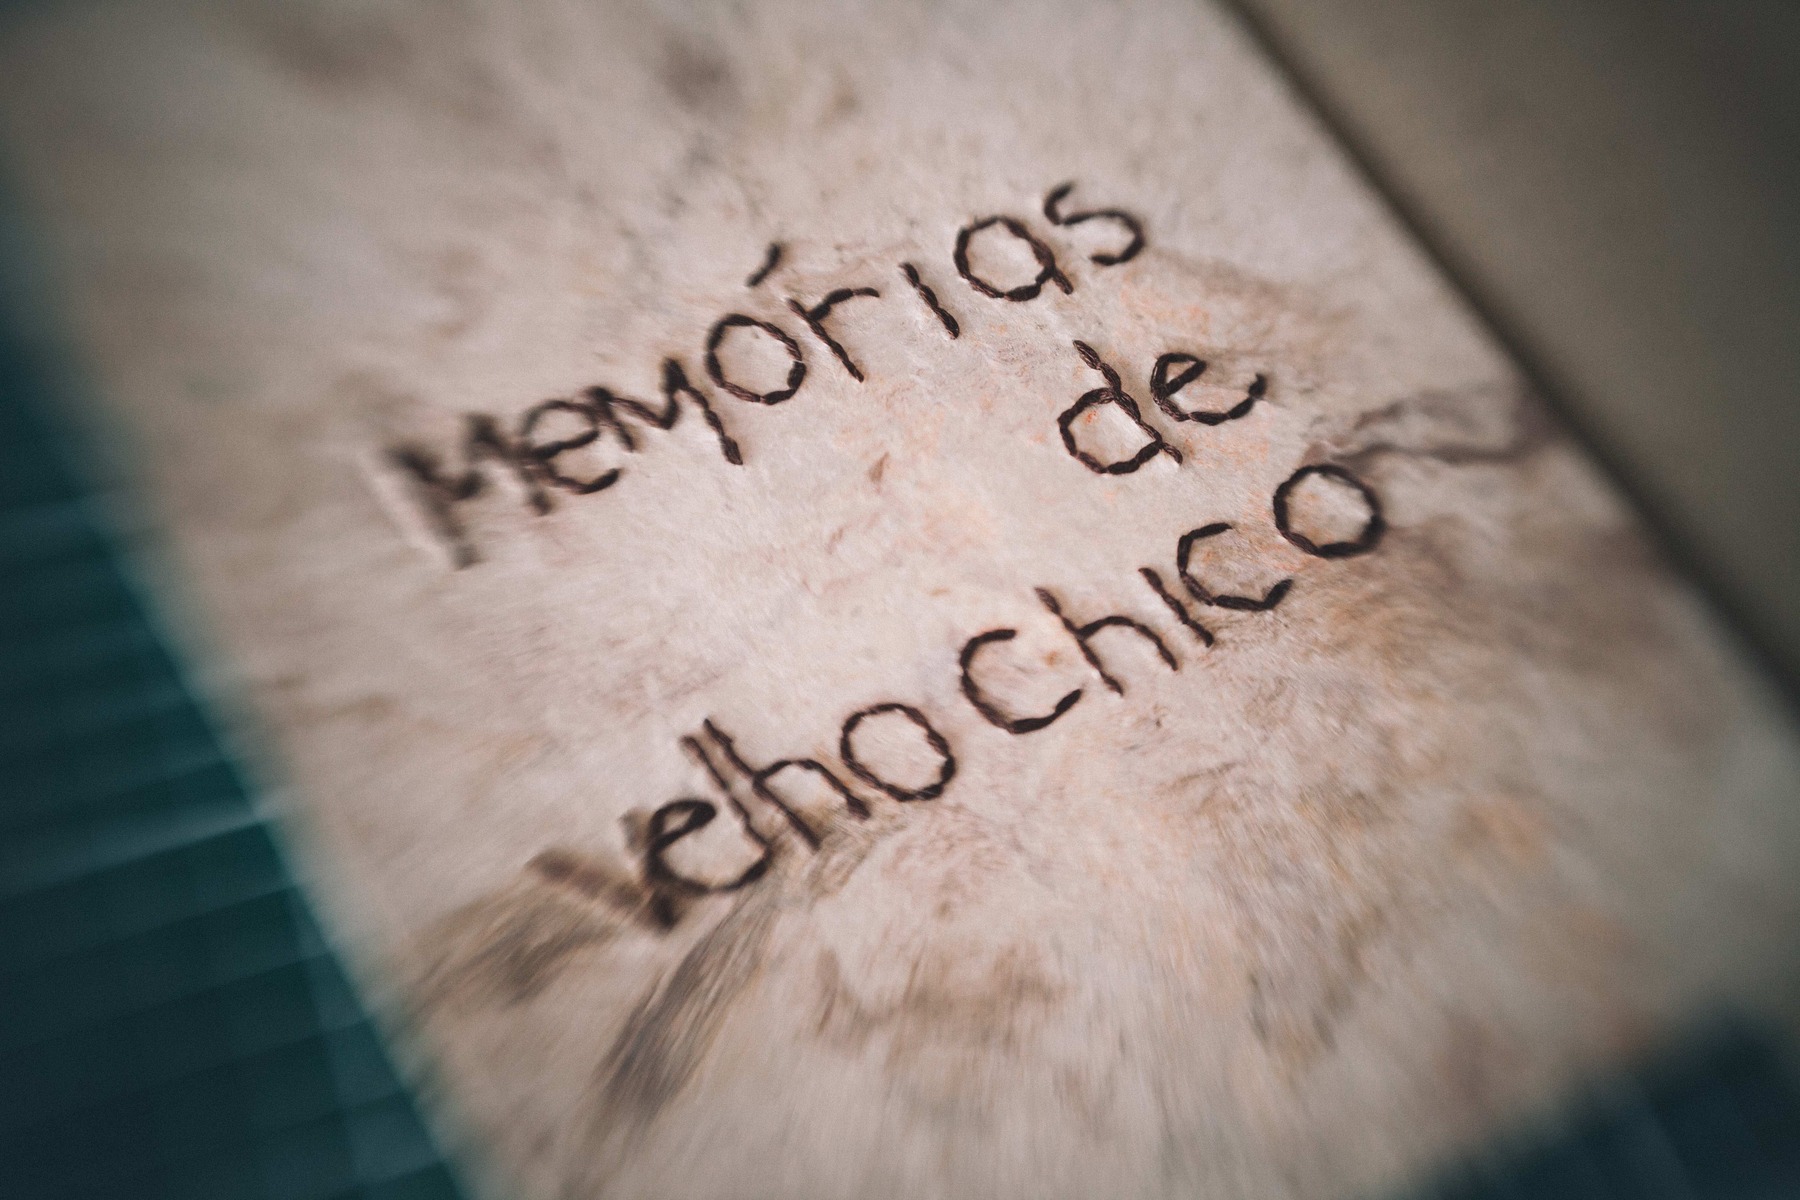 Memórias
de
Velho Chico